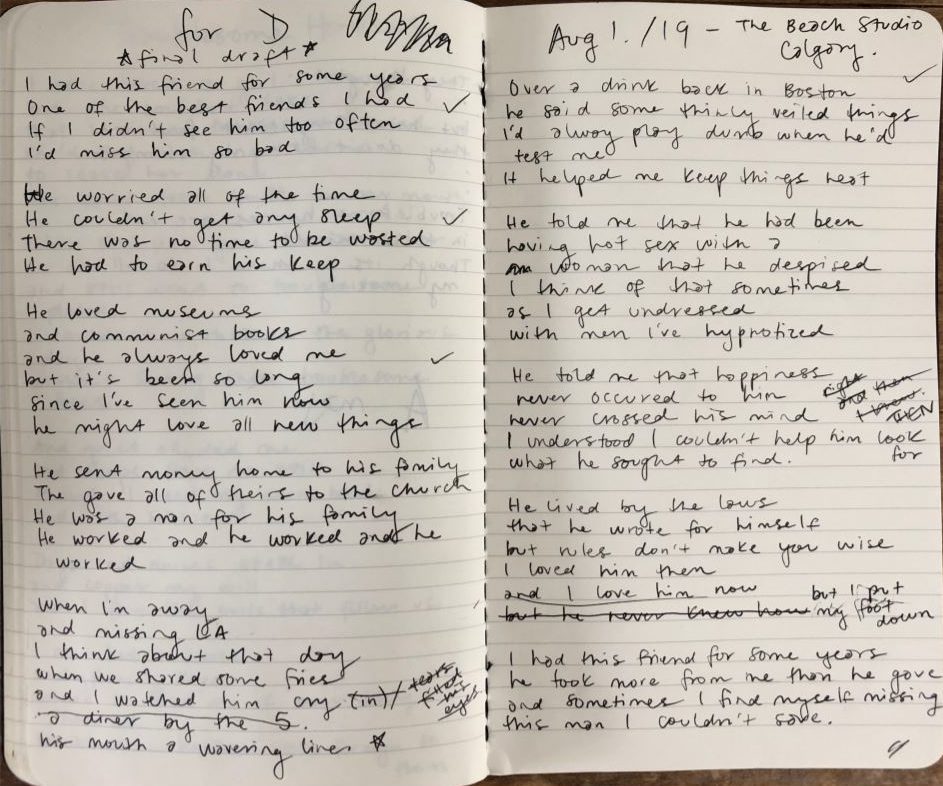 for D
☆ final draft ☆
I had this friend for some years
One of the best friends I had ✓
If I didn't see him too often
I'd miss him so bad
He worried all of the time
He couldn't get any sleep ✓
There was no time to be wasted
He had to earn his keep
He loved museums
and communist books
and he always loved me ✓
but it's been so long
since I've seen him now
he might love all new things
He sent money home to his family
The gave all of theirs to the church
He was a man for his family
He worked and he worked and he
worked
When I'm away
and missing LA
I think about that day
when we shared some fries
and I watched him cry (in) / tears
filled
his
eyes
a diner by the 5.
his mouth a wavering line. ☆
Aug 1./19 – The Beach Studio
Calgary.
Over a drink back in Boston ✓
he said some thinly veiled things
I'd alway play dumb when he'd
test me
It helped me keep things neat
He told me that he had been
having hot sex with a
woman that he despised
I think of that sometimes
as I get undressed
with men I've hypnotized
He told me that happiness
never occured to him
never crossed his mind
right
and then
I knew.
THEN
I understood I couldn't help him look
for
what he sought to find.
He lived by the laws
that he wrote for himself
but rules don't make you wise
I loved him then
and I love him now but I put
but he never knew how my foot
down
I had this friend for some years
he took more from me than he gave
and sometimes I find myself missing
this man I couldn't save.